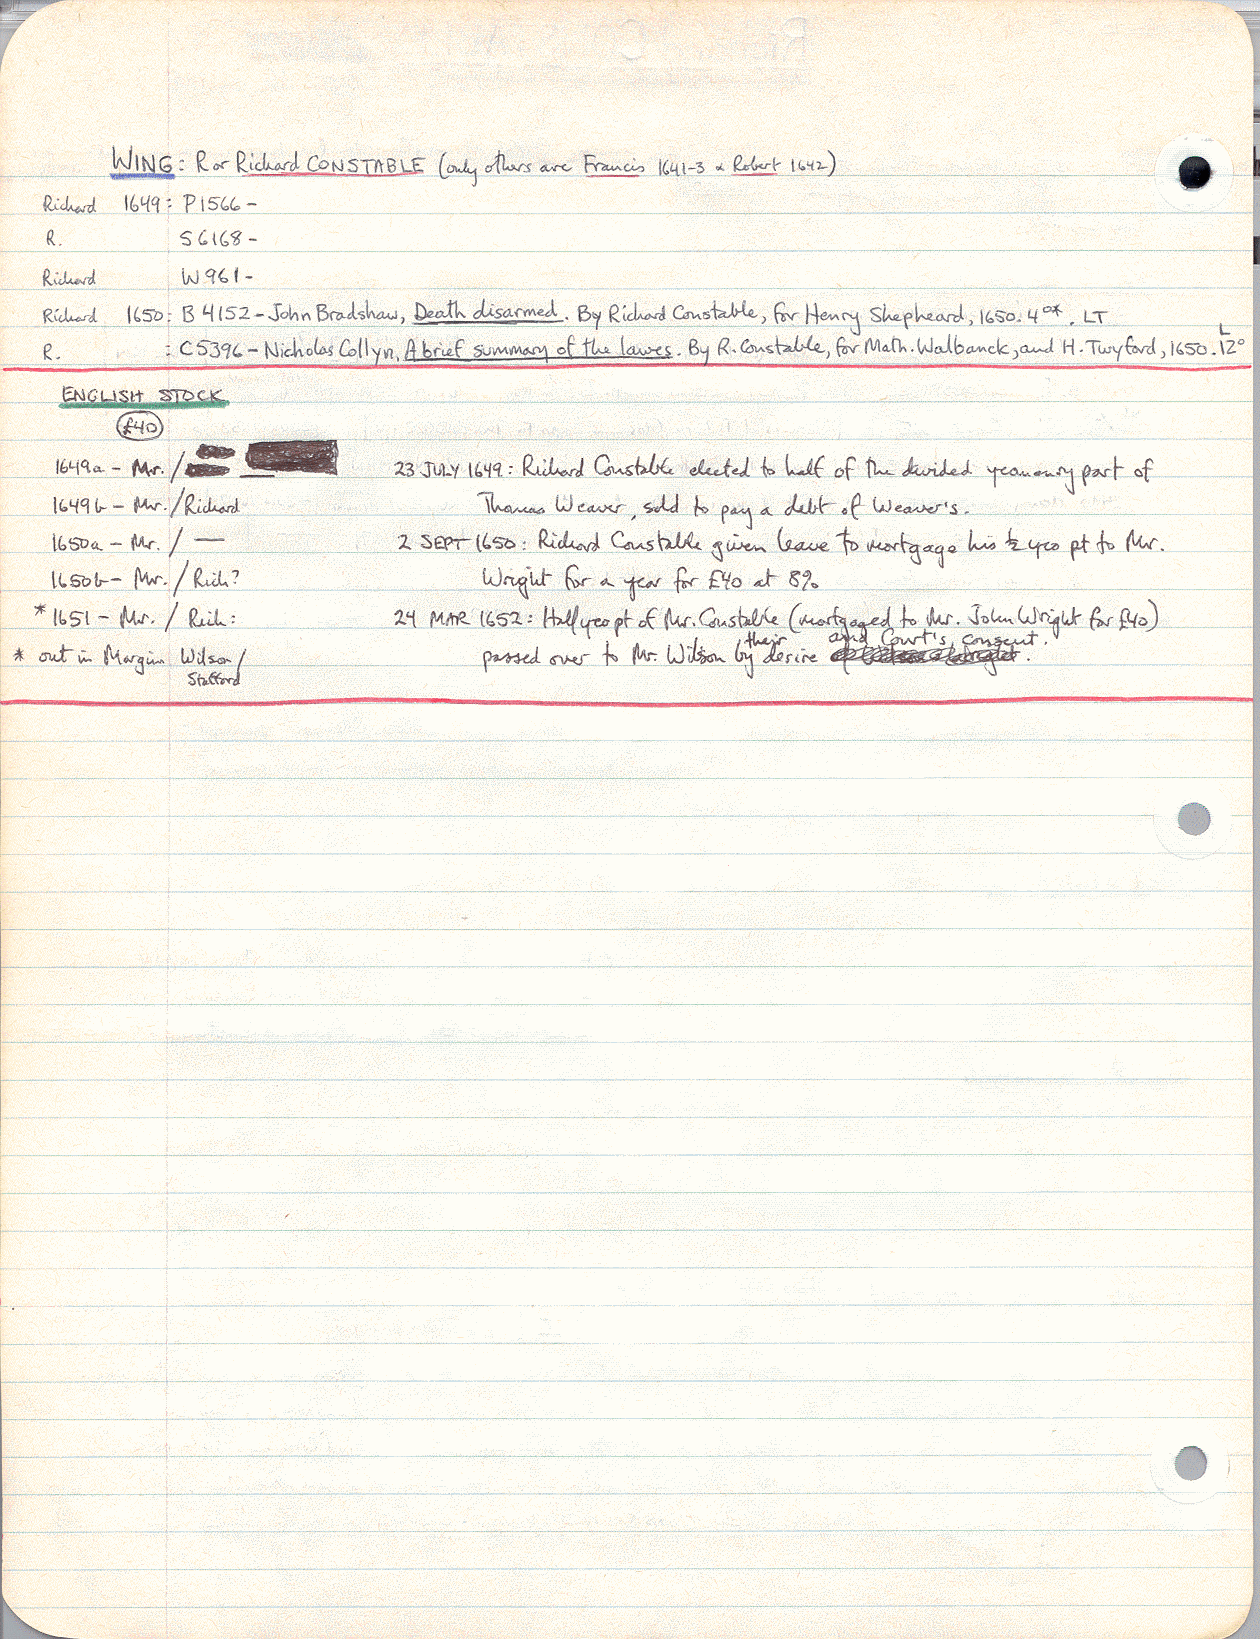 WING: R or Richard CONSTABLE (only others are Francis 1641-3 & Robert 1642)
Richard 1649: P1566-
R. S6168-
Richard W961-
Richard 1650: B4152-John Bradshaw, Death disarmed. By Richard Constable, for Henry Shepheard, 1650. 4°*. LT
R. : C5396-Nicholas Collyn, A brief summary of the lawes. By R. Constable, for Math. Walbanck, and H. Twyford, 1650. 12° L
ENGLISH STOCK
£40
1649a - Mr. / 23 JULY 1649: Richard Constable elected to half of the divided yeomanry part of
1649b - Mr. / Richard Thomas Weaver, sold to pay a debt of Weaver's.
1650a - Mr. / — 2 SEPT 1650: Richard Constable given leave to mortgage his ½ yeo pt to Mr.
1650b - Mr. / Rich? Wright for a year for £40 at 8%
*1651 - Mr. / Rich: 24 MAR 1652: Half yeo pt of Mr. Constable (mortgaged to Mr. John Wright for £40)
* out in Margin Wilson/ passed over to Mr. Wilson by their desire and Court's consent.
Stafford